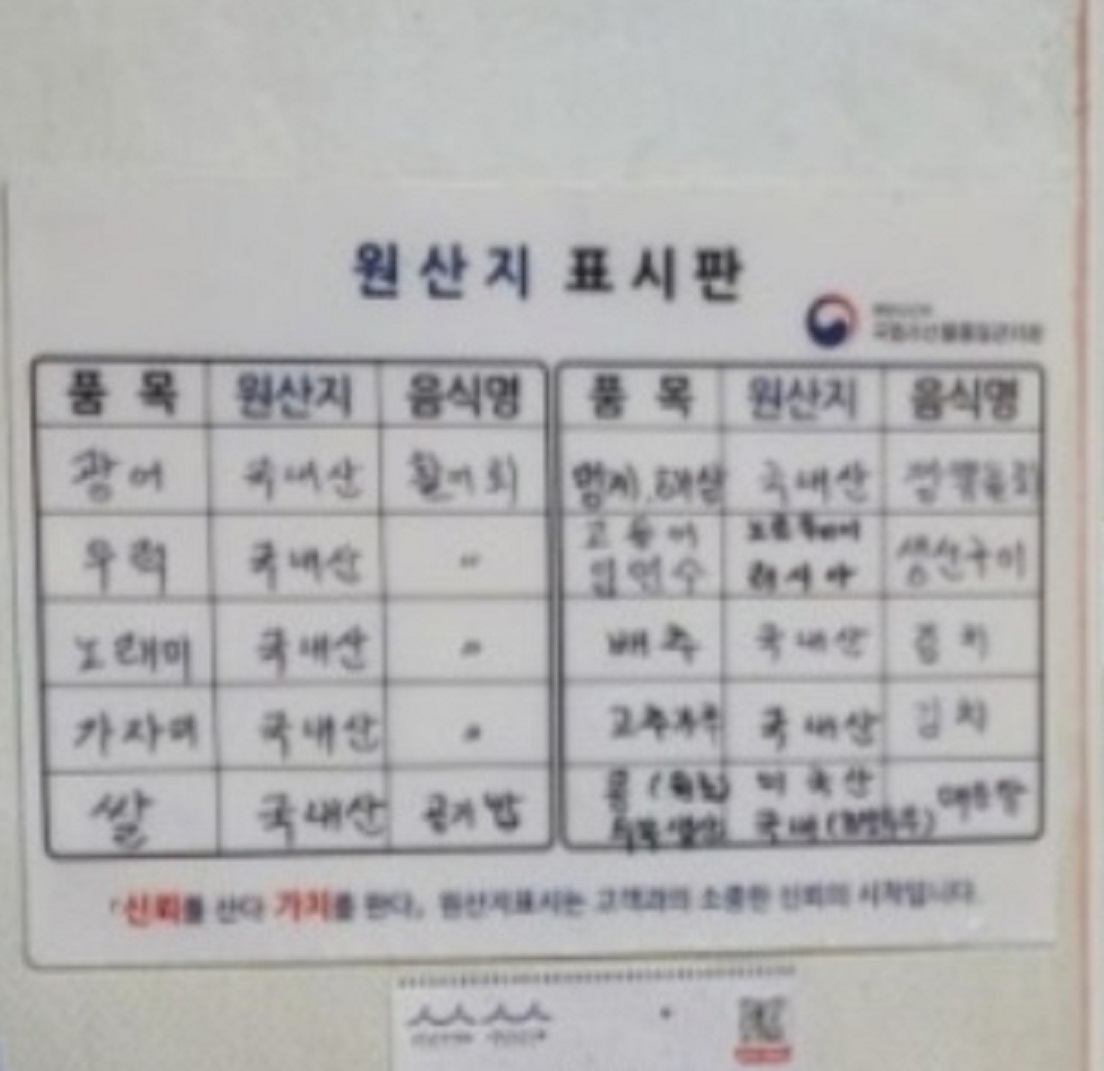 원산지 표시판
품 목 원산지 음식명 품 목 원산지 음식명
광어 국내산 활어회 멍게, 해삼 국내산
우럭 국내산 〃 고등어 노르웨이 생선구이
임연수 러시아
노래미 국내산 〃 배추 국내산 김치
가자미 국내산 〃 고추가루 국내산 김치
쌀 국내산 공기밥 콩 미국산 매운탕
국내
「신뢰를 산다 가치를 판다」 원산지표시는 고객과의 소중한 신뢰의 시작입니다.